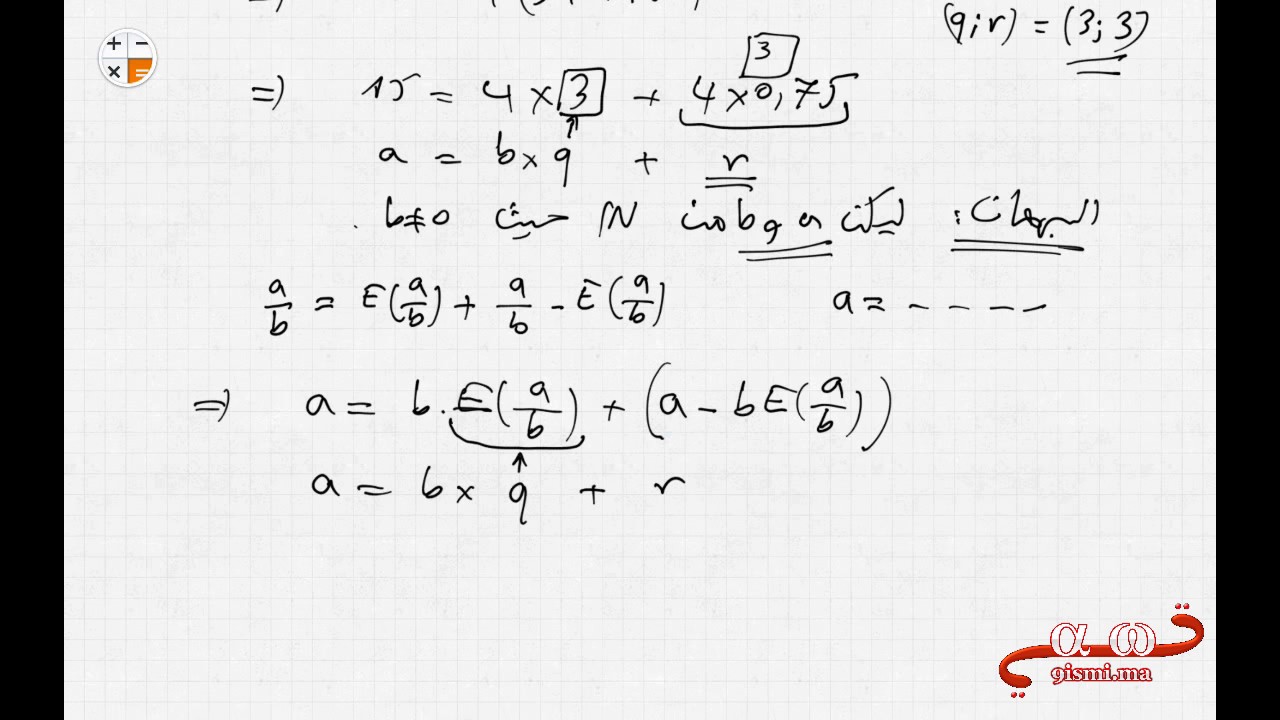 (q;r) = (3; 3)
3
=> 15 = 4 × 3 + 4 × 0,75
a = b × q + r
البرهان: ليكن a و b من IN حيث b≠0 .
a/b = E(a/b) + a/b - E(a/b)   a = - - - -
=> a = b . E(a/b) + (a - b E(a/b))
a = b × q + r
α ω
gismi.ma